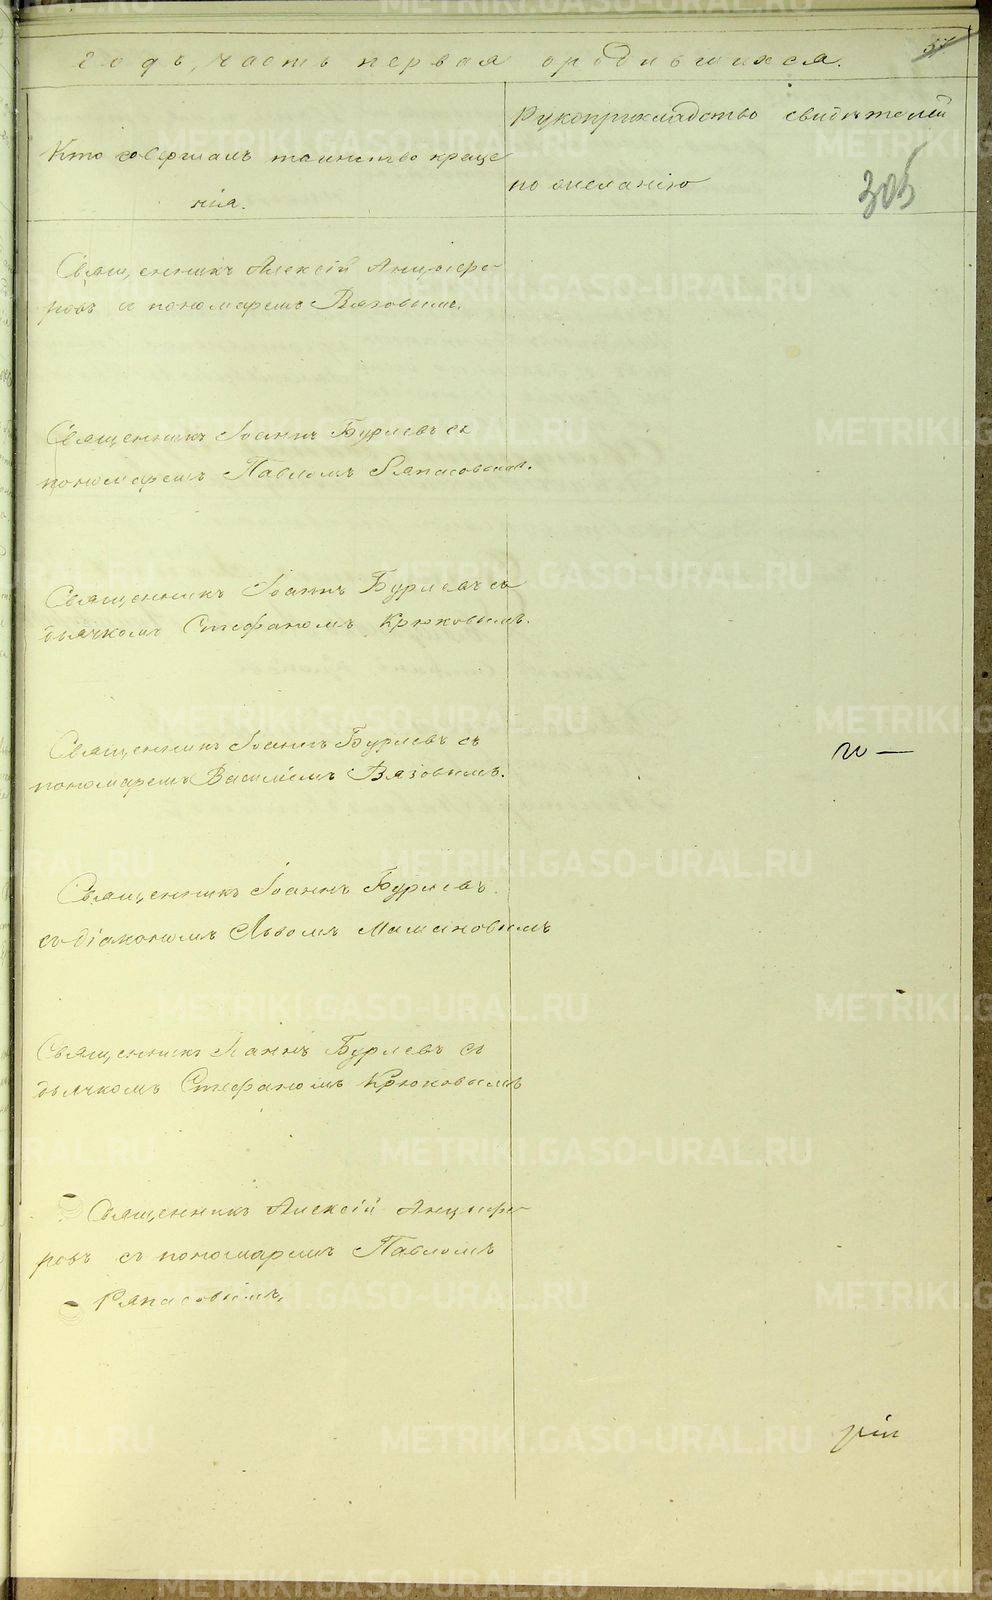 37
годъ, часть первая о родившихся.
Кто совершалъ таинство креще
нія.
Рукоприкладство свидѣтелей
по желанію
305
Священникъ Алексій Анцыфе-
ровъ съ пономаремъ Вязовымъ.
Священникъ Іоаннъ Бурлевъ съ
пономаремъ Павломъ Ряпасовымъ.
Священникъ Іоаннъ Бурлевъ съ
дьячкомъ Стефаномъ Крюковымъ.
Священникъ Іоаннъ Бурлевъ съ
пономаремъ Василіемъ Вязовымъ.
Священникъ Іоаннъ Бурлевъ
съ діакономъ Львомъ Маминовымъ
Священникъ Іоаннъ Бурлевъ съ
дьячкомъ Стефаномъ Крюковымъ
Священникъ Алексій Анцыфе-
ровъ съ пономаремъ Павломъ
Ряпасовымъ.
METRIKI.GASO-URAL.RU